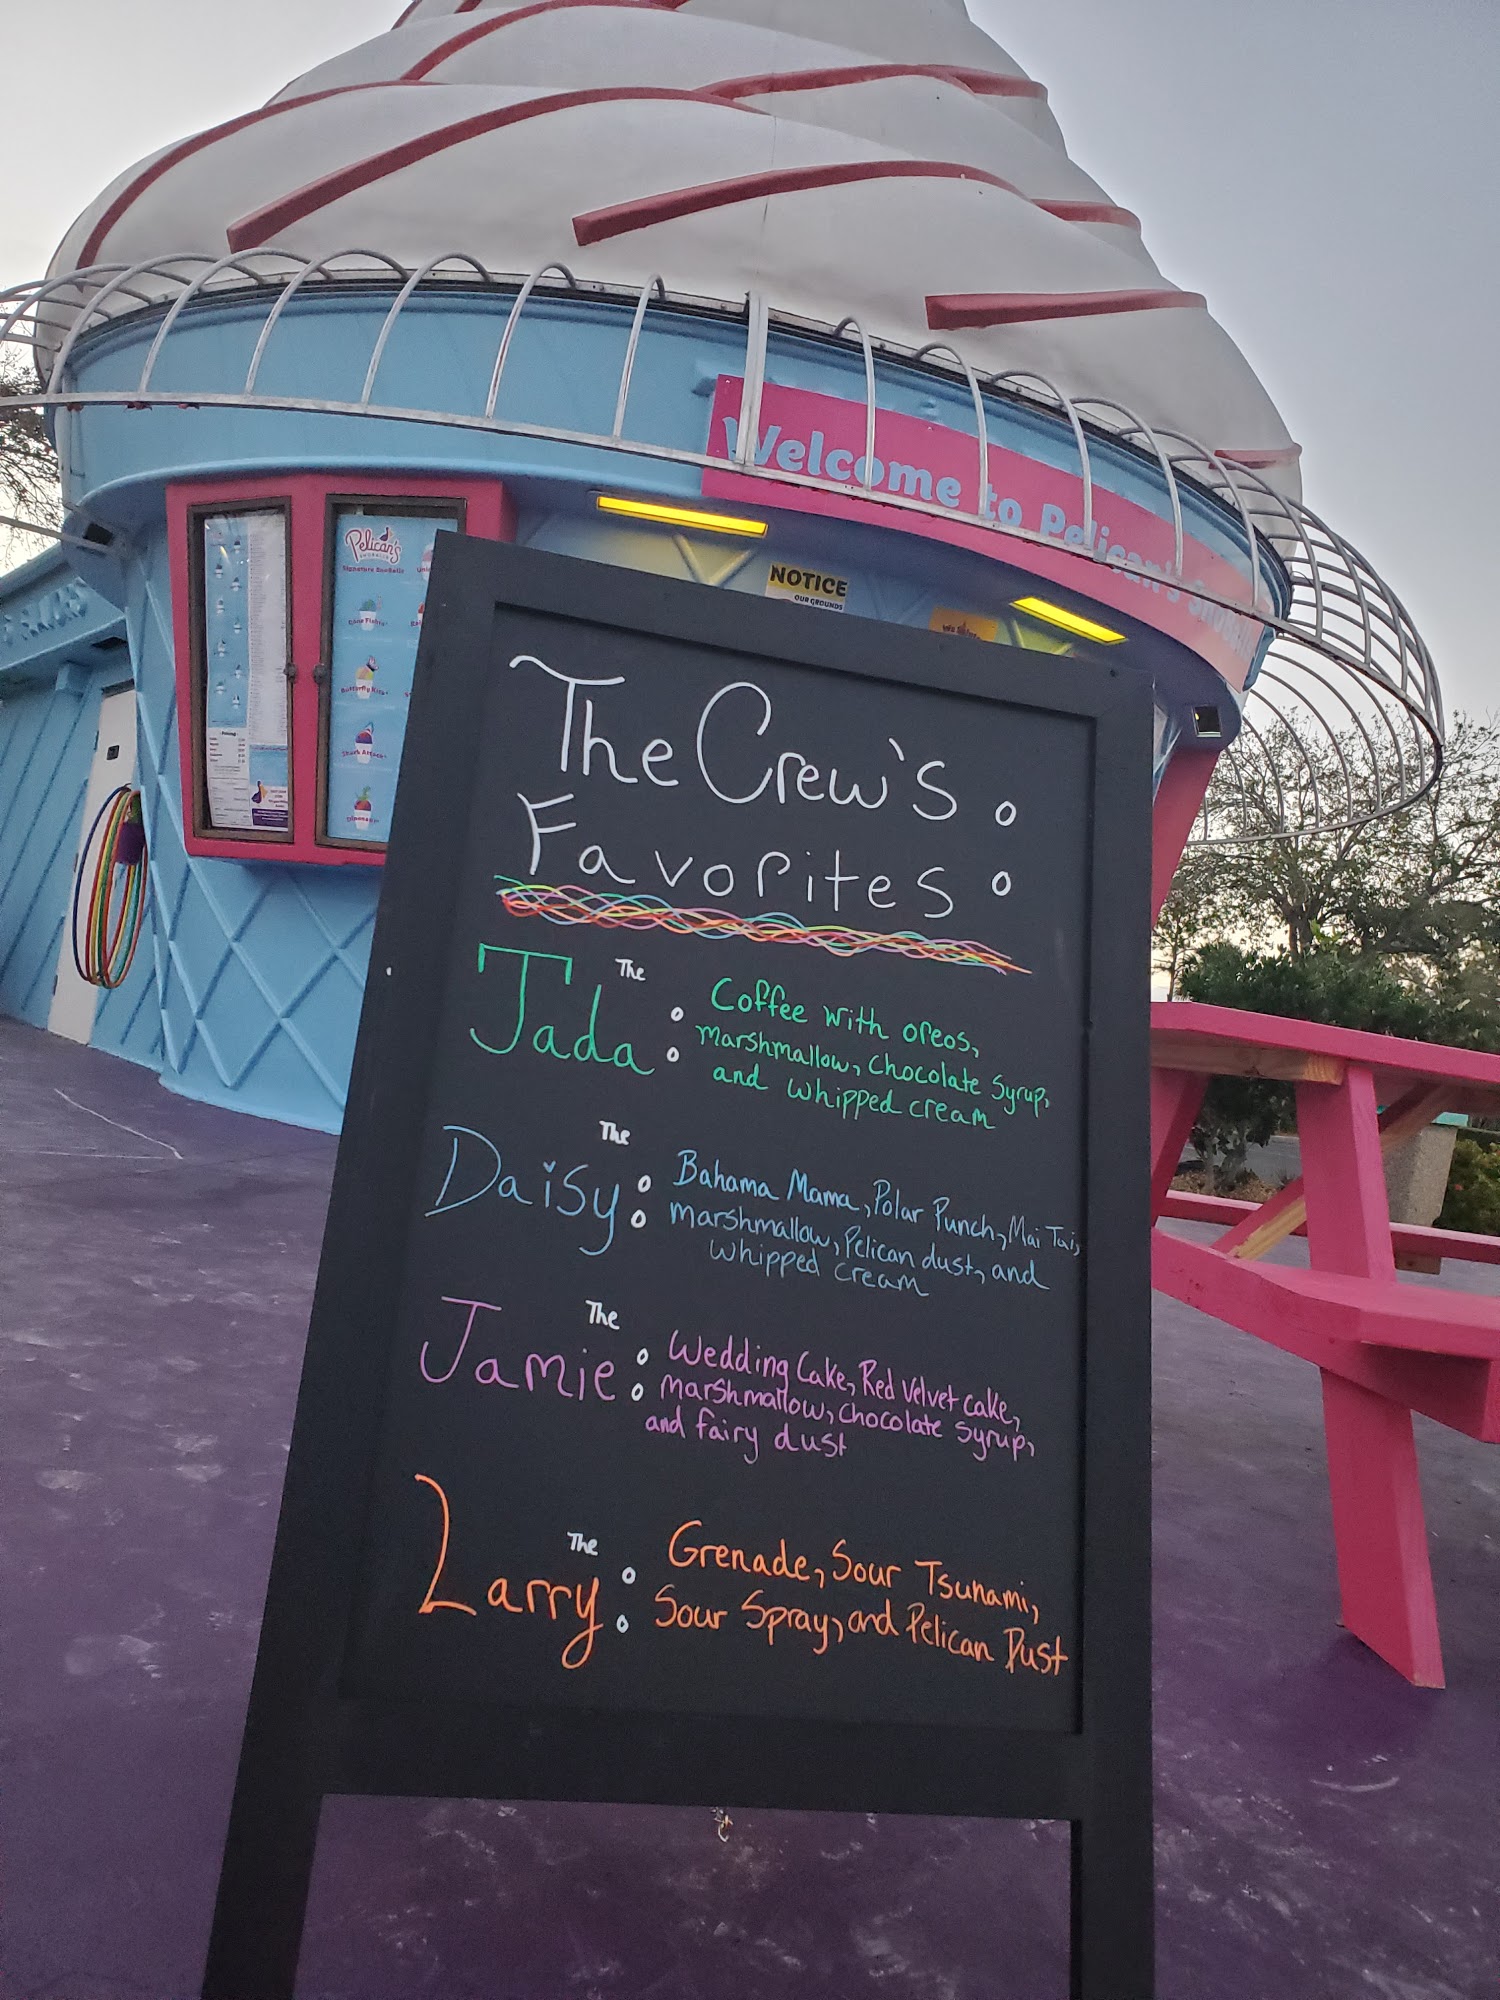 Welcome to Pelican's
Pelican's
SNOBALLS
Signature SnoBalls
NOTICE
OUR GROUNDS
Butterfly Kiss
Shark Attack
The Crew's :
Favorites :
The
Jada : Coffee with oreos,
marshmallow, Chocolate Syrup,
and whipped cream
The
Daisy : Bahama Mama, Polar Punch, Mai Tai,
marshmallow, Pelican dust, and
whipped cream
The
Jamie : Wedding Cake, Red Velvet cake,
marshmallow, chocolate syrup,
and fairy dust
The
Larry : Grenade, Sour Tsunami,
Sour Spray, and Pelican Dust